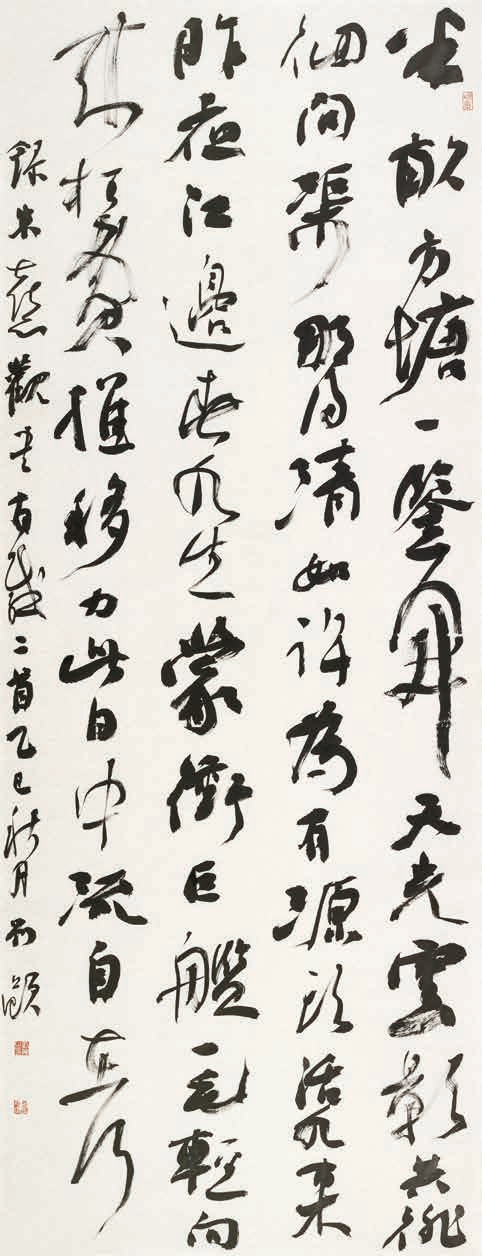 半畝方塘一鑒開天光雲影共徘
徊問渠那得清如許為有源頭活水來
昨夜江邊春水生蒙衝巨艦一毛輕向
來枉費推移力此日中流自在行
錄朱熹觀書有感二首乙巳秋月